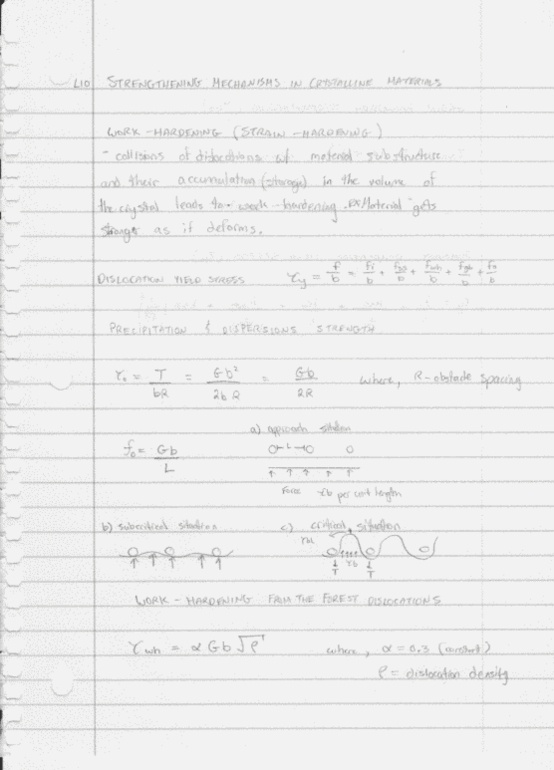 L10 STRENGTHENING MECHANISMS IN CRYSTALLINE MATERIALS
WORK-HARDENING (STRAIN-HARDENING)
- collisions of dislocations w/ material substructure
and their accumulation (storage) in the volume of
the crystal leads to work-hardening. Material "gets
stronger as it deforms.
DISLOCATION YIELD STRESS τy = f/b = fi/b + fss/b + fwh/b + fgb/b +
PRECIPITATION & DISPERSIONS STRENGTH
τo = T/bR = Gb²/2bR = Gb/2R where, R-obstacle spacing
a) approach situation
fo = Gb/L
L
Force τb per unit length
b) subcritical situation c) critical situation
τb
T T
WORK-HARDENING FROM THE FOREST DISLOCATIONS
τwh = α Gb √ρ where, α = 0.3 (constant)
ρ = dislocation density